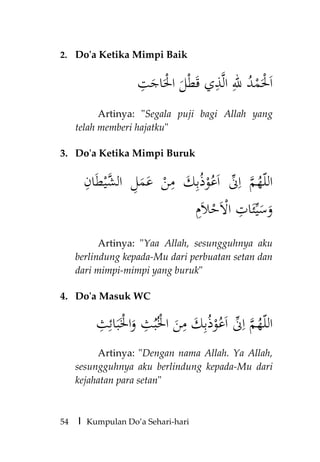 2. Do'a Ketika Mimpi Baik
اَلْحَمْدُ لِلّٰهِ الَّذِي قَطْلَ الْحَاجَتِ
Artinya: "Segala puji bagi Allah yang
telah memberi hajatku"
3. Do'a Ketika Mimpi Buruk
اللّٰهُمَّ اِنِّى اَعُوْذُبِكَ مِنْ عَمَلِ الشَّيْطَانِ
وَسَيِّئَاتِ الْاَحْلاَمِ
Artinya: "Yaa Allah, sesungguhnya aku
berlindung kepada-Mu dari perbuatan setan dan
dari mimpi-mimpi yang buruk"
4. Do'a Masuk WC
اللّٰهُمَّ اِنِّى اَعُوْذُبِكَ مِنَ الْخُبُثِ وَالْخَبَائِثِ
Artinya: "Dengan nama Allah. Ya Allah,
sesungguhnya aku berlindung kepada-Mu dari
kejahatan para setan"
54 | Kumpulan Do'a Sehari-hari